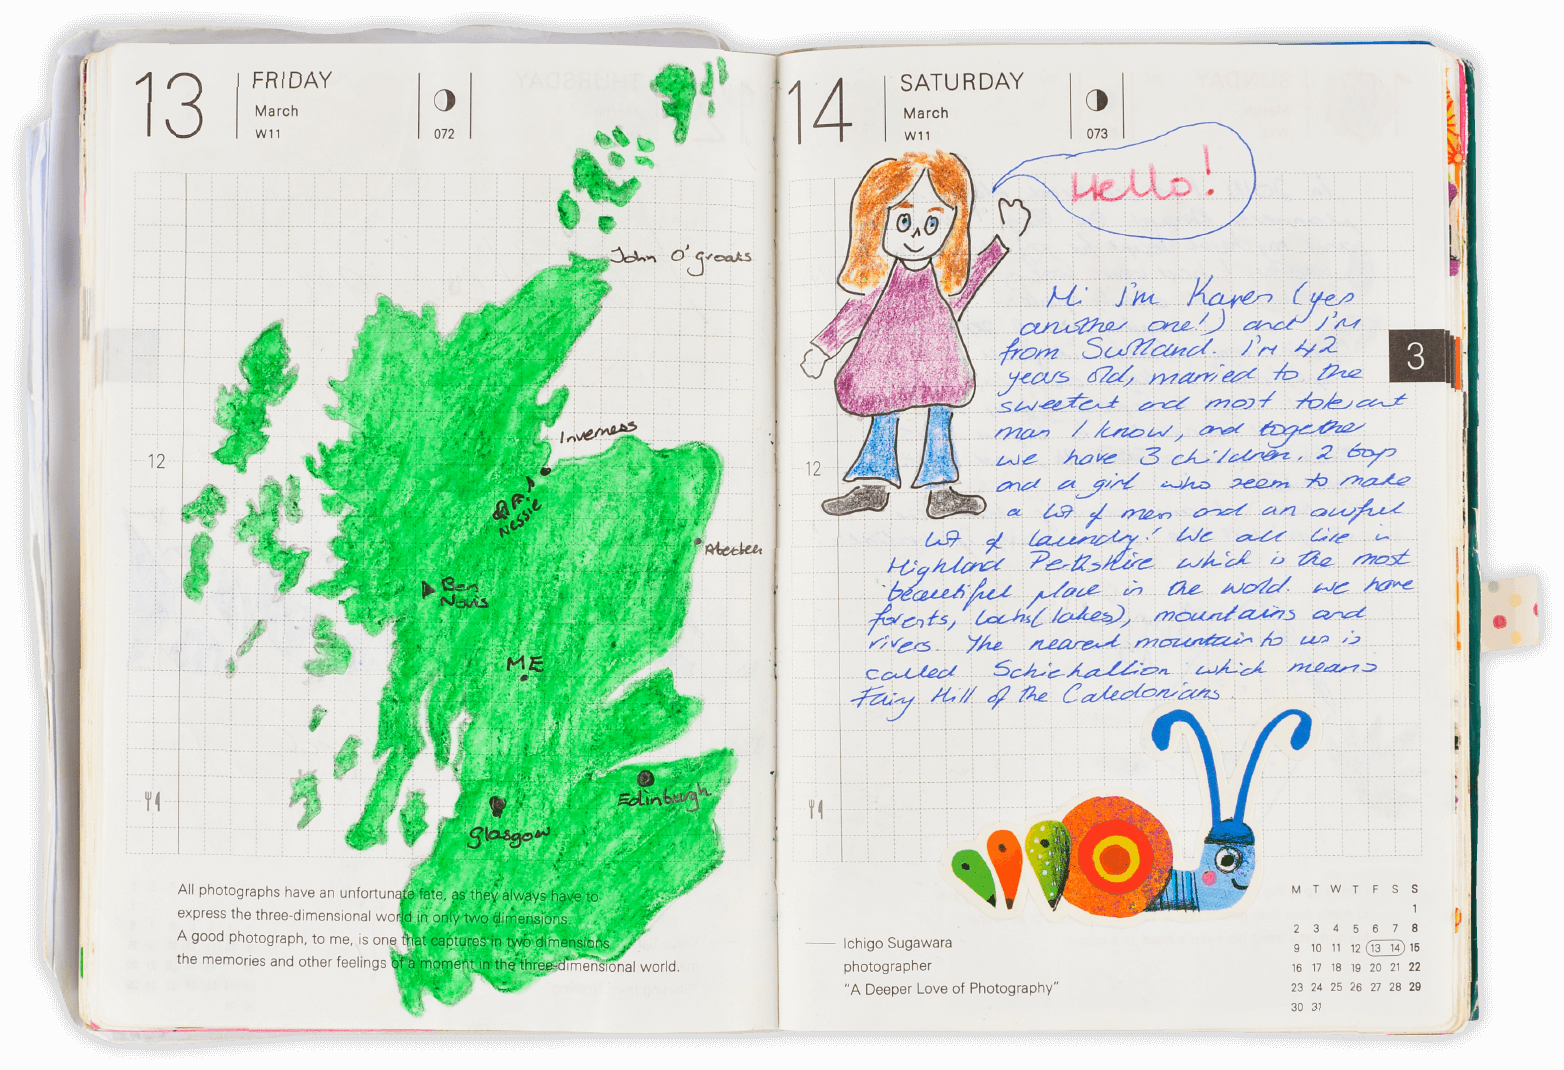 13
FRIDAY
March
W11
072
John O'groats
Inverness
Nessie
Aberdeen
Ben
Nevis
ME
Edinburgh
Glasgow
12
All photographs have an unfortunate fate, as they always have to
express the three-dimensional world in only two dimensions.
A good photograph, to me, is one that captures in two dimensions
the memories and other feelings of a moment in the three-dimensional world.
14
SATURDAY
March
W11
073
Hello!
Hi I'm Karen (yes
another one!) and I'm
from Scotland. I'm 42
years old, married to the
sweetest and most tolerant
man I know, and together
we have 3 children. 2 boys
and a girl who seem to make
a lot of mess and an awful
lot of laundry! We all live in
Highland Perthshire which is the most
beautiful place in the world. we have
forests, lochs (lakes), mountains and
rivers. The nearest mountain to us is
called Schichallion which means
Fairy Hill of the Caledonians.
3
12
Ichigo Sugawara
photographer
"A Deeper Love of Photography"
M T W T F S S
1
2 3 4 5 6 7 8
9 10 11 12 13 14 15
16 17 18 19 20 21 22
23 24 25 26 27 28 29
30 31